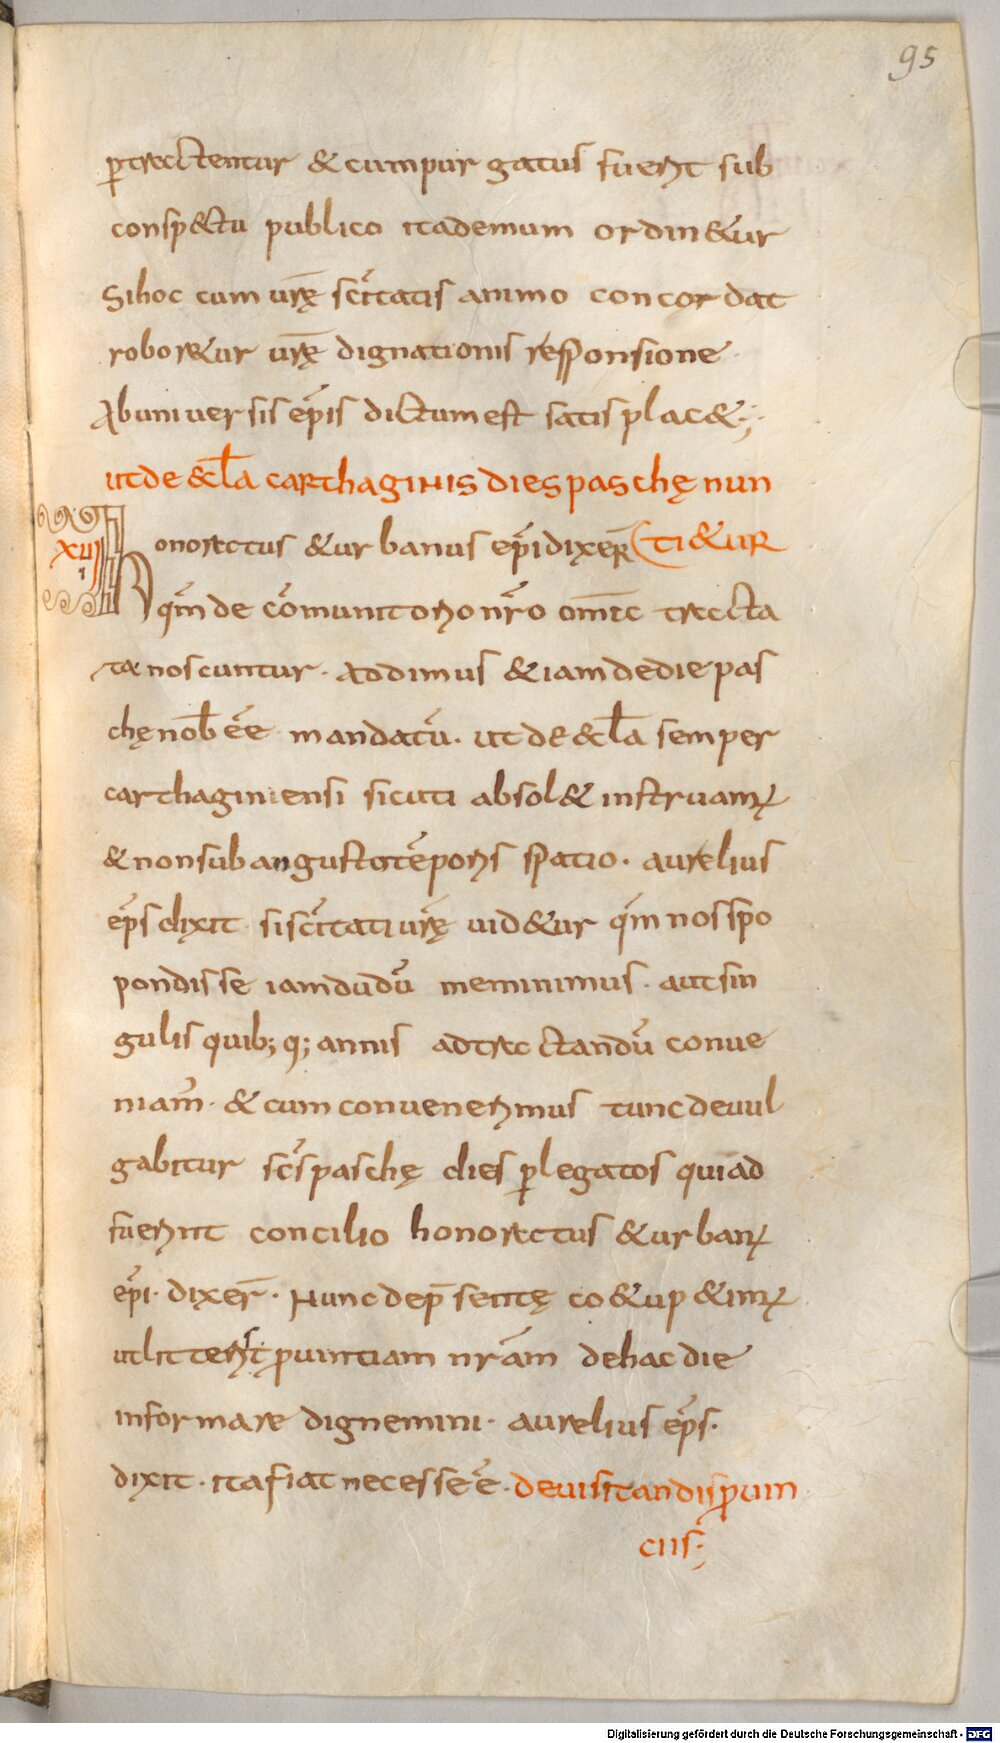 95
ꝑtractentur & cum purgatus fuerit sub
conspectu publico ita demum ordin&ur
Si hoc cum ur̄ę sc̄itatis animo concordat
robor&ur ur̄ę dignationis responsione·
Ab universis ep̄is dictum est satis plac&·;·
ut de &cl̄a carthaginis dies paschę nun
XUI
onoratus & urbanus ep̄i dixer̄ ti&ur
qm̄ de com̄unitorio nr̄o om̄ic tracta
ta noscuntur· Addimus & iam de die pas
chę nob̄ ēē mandatū· ut de &cl̄a semper
carthaginiensi sicuti absol& instruamur
& non sub angusto tēporis spatio· aurelius
ep̄s dixit· si sc̄itati ur̄ę uid&ur qm̄ nos spo
pondisse iamdudū meminimus· aut sin
gulis quib; q; annis ad tractandū conue
niam̄· & cum conuenerimus tunc deuul
gabitur sc̄s paschę dies ꝑ legatos qui ad
fuerint concilio honoratus & urban;
ep̄i· dixer̄· Hunc de p̄sentę co&u p&im;
ut litteris ꝓuintiam nr̄am de hac die
informare dignemini· aurelius ep̄s·
dixit· ita fiat necesse ē· de uisitandis ꝓuin
ciis·
Digitalisierung gefördert durch die Deutsche Forschungsgemeinschaft - DFG